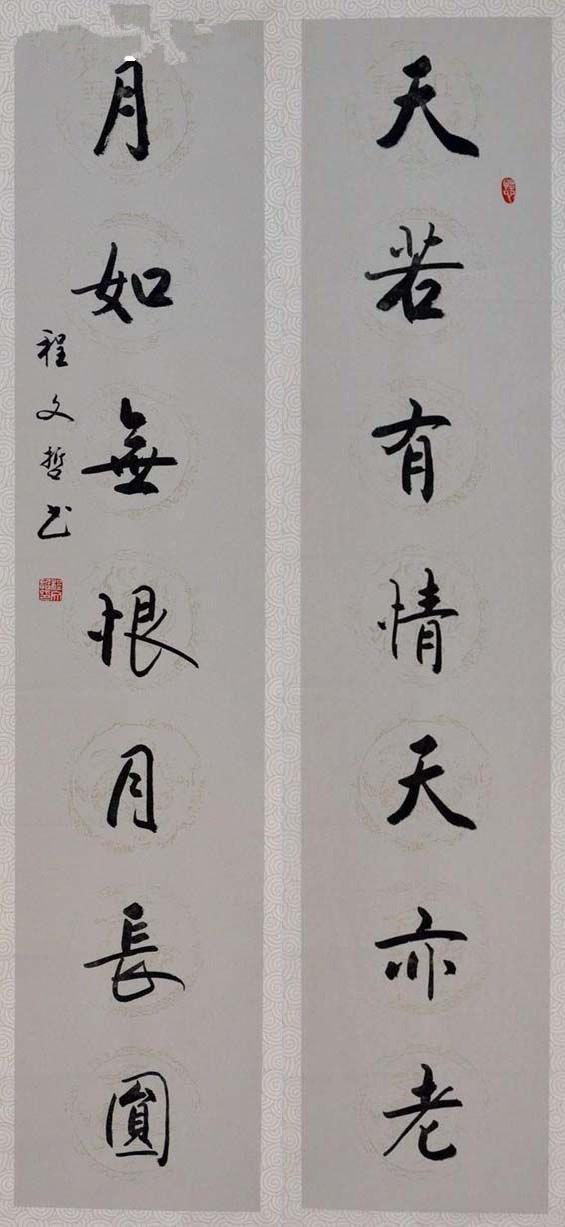 天若有情天亦老
月如無恨月長圓
程文哲书